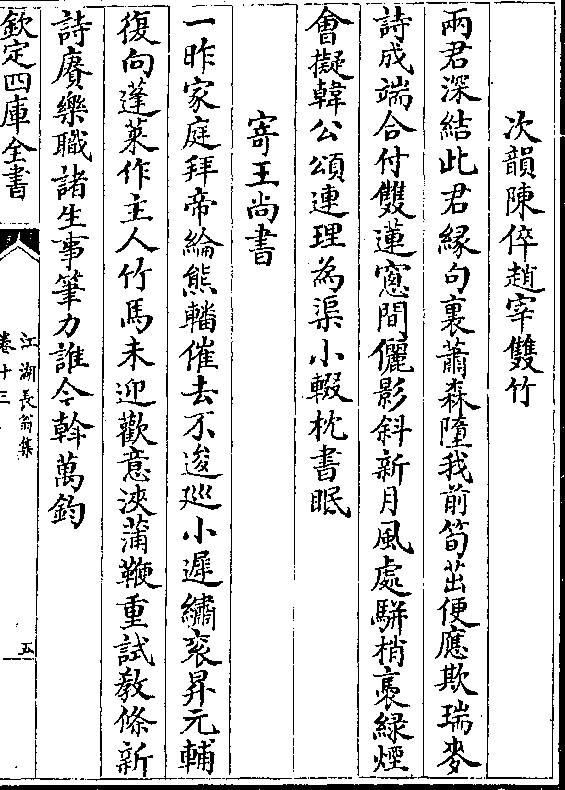 次韻陳倅趙宰雙竹
兩君深結此君縁句裏蕭森墮我前筍茁便應欺瑞麥
詩成端合付雙蓮窓間儷影斜新月風處駢梢裊緑煙
會擬韓公頌連理為渠小輟枕書眠
寄王尚書
一昨家庭拜帝綸熊轓催去不逡廵小遲繡衮昇元輔
復向蓬萊作主人竹馬未迎歡意浹蒲鞭重試敎條新
詩賡樂職諸生事筆力誰令斡萬鈞
欽定四庫全書
江湖長翁集
卷十三
五